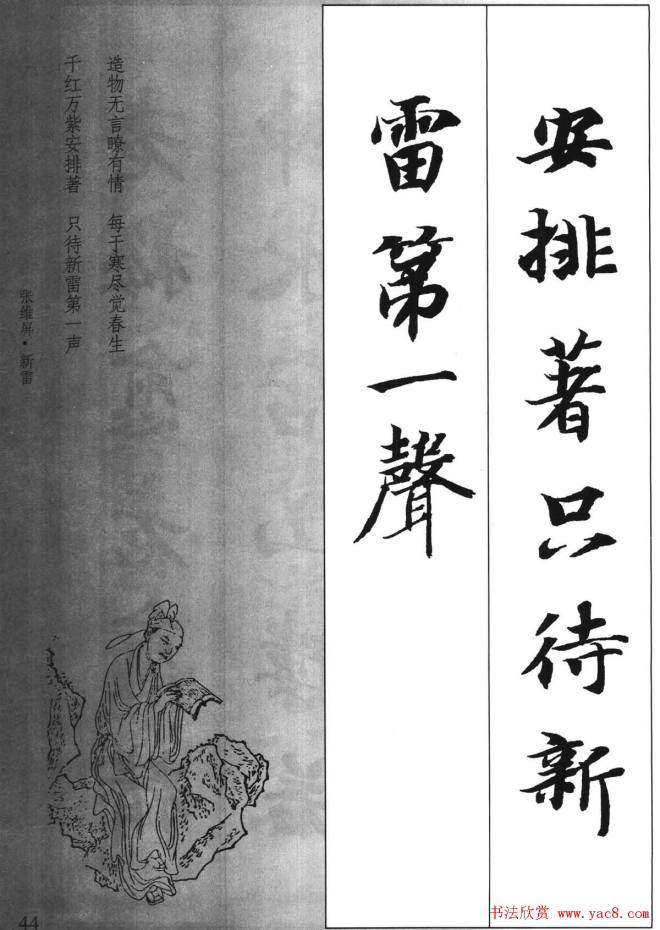 安排著只待新
雷第一聲
造物无言瞭有情 每于寒尽觉春生
千红万紫安排著 只待新雷第一声
张维屏·新雷
44
书法欣赏 www.yac8.com